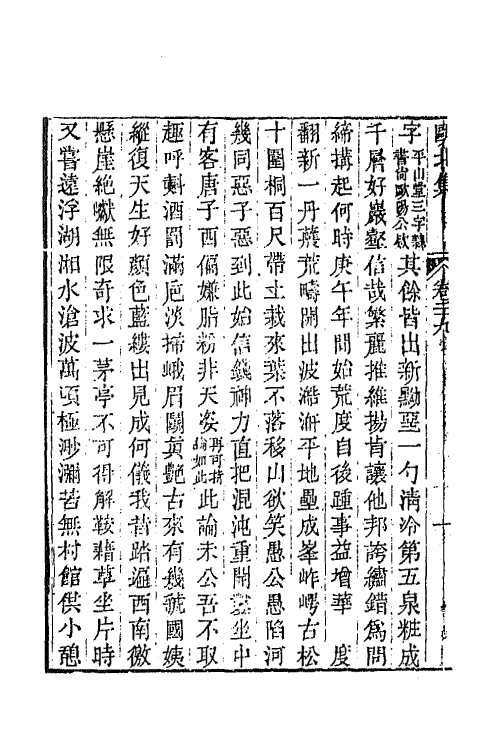 甌北集　卷二十九　十
字平山堂三字隸書尚歐陽公欵其餘皆出新黝堊一勺淸泠第五泉粧成
千層好巖壑信哉繁麗推維揚肯讓他邦誇繡錯爲問
締搆起何時庚午年間始荒度自後踵事益增華　度
翻新一丹雘荒疇開出波浩瀚平地壘成峯岝崿古松
十圍桐百尺帶土栽來葉不落移山欲笑愚公愚陷河
幾同惡子惡到此始信錢神力直把混沌重開鑿坐中
有客唐子西偏嫌脂粉非天姿再可持論如此此論未公吾不取
趣呼𣂏酒罰滿巵淡掃蛾眉鬭眞艷古來有幾虢國姨
縱復天生好顏色藍縷出見成何儀我昔踏遍西南徼
懸崖絶巘無限奇求一茅亭不可得解鞍藉草坐片時
又嘗遠浮湖湘水滄波萬頃極渺瀰若無村館供小憩